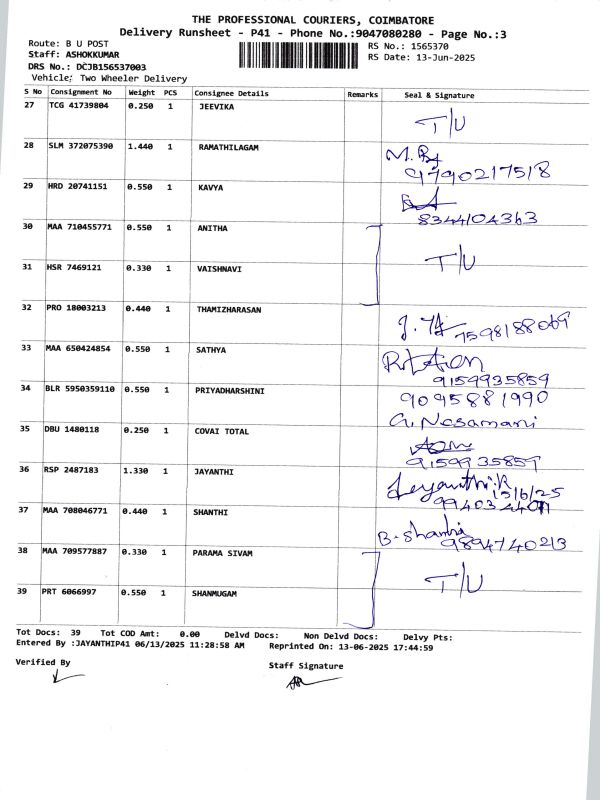 THE PROFESSIONAL COURIERS, COIMBATORE
Delivery Runsheet - P41 - Phone No.:9047080280 - Page No.:3
Route: B U POST RS No.: 1565370
Staff: ASHOKKUMAR RS Date: 13-Jun-2025
DRS No.: DCJB156537003
Vehicle: Two Wheeler Delivery
S No Consignment No Weight PCS Consignee Details Remarks Seal & Signature
27 TCG 41739804 0.250 1 JEEVIKA
T/U
28 SLM 372075390 1.440 1 RAMATHILAGAM
9790217518
29 HRD 20741151 0.550 1 KAVYA
8344104363
30 MAA 710455771 0.550 1 ANITHA
T/U
31 HSR 7469121 0.330 1 VAISHNAVI
32 PRO 18003213 0.440 1 THAMIZHARASAN
7598188069
33 MAA 650424854 0.550 1 SATHYA
9159935859
34 BLR 5950359110 0.550 1 PRIYADHARSHINI
9095881990
G. Nesamani
35 DBU 1480118 0.250 1 COVAI TOTAL
9159935859
36 RSP 2487183 1.330 1 JAYANTHI
Jeyanthi.R
37 MAA 708046771 0.440 1 SHANTHI
B. Shanthi
9894740213
38 MAA 709577887 0.330 1 PARAMA SIVAM
T/U
39 PRT 6066997 0.550 1 SHANMUGAM
Tot Docs: 39 Tot COD Amt: 0.00 Delvd Docs: Non Delvd Docs: Delvy Pts:
Entered By :JAYANTHIP41 06/13/2025 11:28:58 AM Reprinted On: 13-06-2025 17:44:59
Verified By Staff Signature